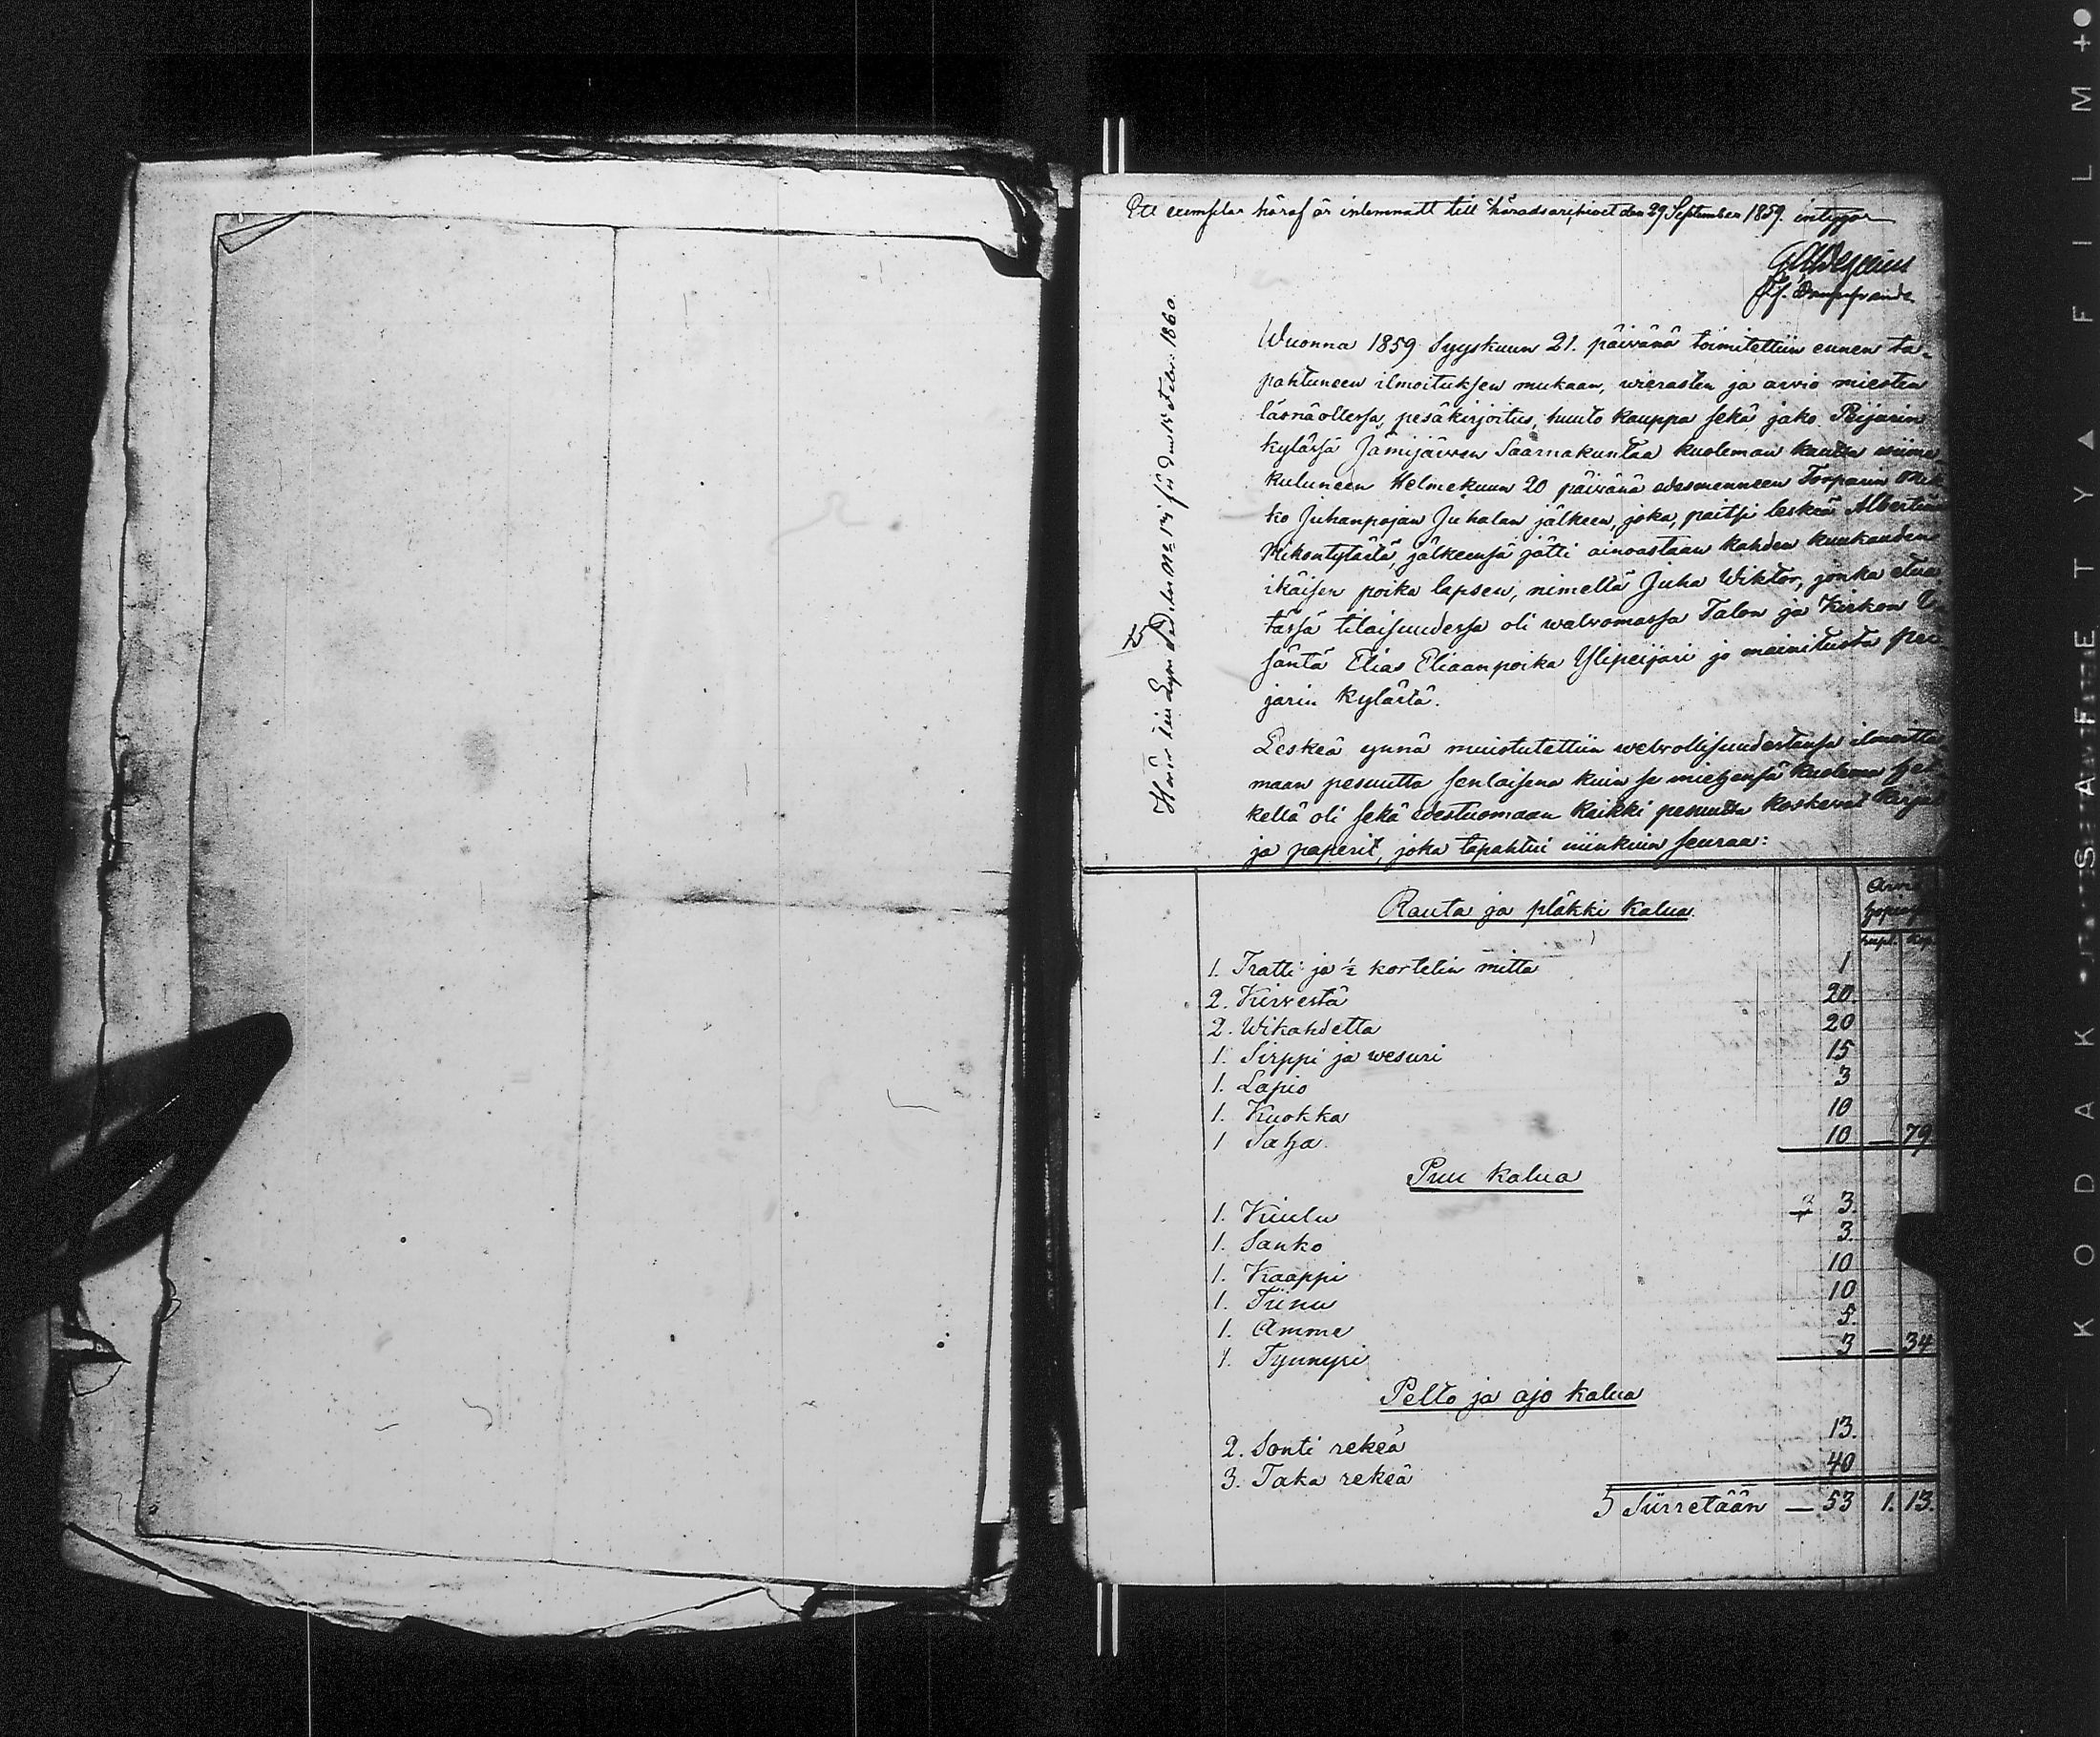 Ett exemplar häraf är inlemnadt till häradsarkivet den 29 September 1859. intygar
Wuonna 1859 Syyskuun 21. päivänä toimitettiin ennen ta-
pahtuneen ilmoituksen mukaan, wierasten ja arvio miesten
läsnäollessa, pesäkirjoitus, huuto kauppa sekä jako Peijarin
kylässä Jämijärven Saarnakuntaa kuoleman kautta wiime
kuluneen Helmekuun 20 päivänä edesmenneen Torparin Mik
ko Juhanpojan Juhalan jälkeen, joka, paitsi leskeä Albertina
Mikontytärtä, jälkeensä jätti ainoastaan kahden kuukauden
ikäisen poika lapsen, nimeltä Juha Wiktor, jonka etua
tässä tilaisuudessa oli walvomassa Talon ja Kirkon
säntä Elias Eliaanpoika Ylipeijari jo mainitusta Pei
jarin kylästä.
Leskeä ynnä muistutettiin welvollisuudestansa ilmoitta
maan pesuutta senlaisena kuin se miehensä kuolema het
kellä oli sekä edestuomaan kaikki pesuutta koskevat kirjat
ja paperit, joka tapahtui niinkuin seuraa:
Rauta ja pläkki kalua.
Arvio
hopia
rupl. kop.
1. Tratti ja ½ kortelin mitta 1
2. Kirvestä 20.
2. Wikahdetta 20
1. Sirppi ja wesuri 15
1. Lapio 3
1. Kuokka 10
1 Saha. 10 — 79
Puu kalua
1. Kiulu 3.
1. Sanko 3.
1. Kaappi 10
1. Tiinu 10
1. Amme 5.
1. Tynnyri 3 — 34
Pelto ja ajo kalua
2. Sonti rekeä 13.
3. Taka rekeä 40
5 Siirretään — 53 1. 13.